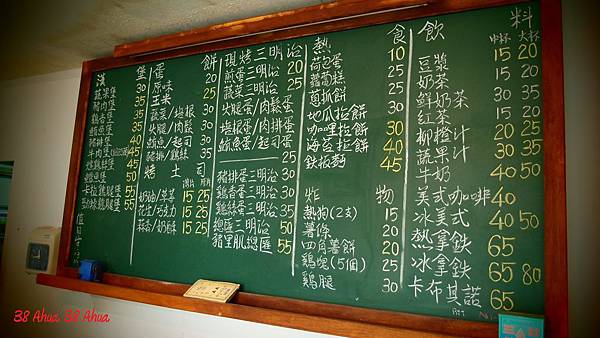 漢堡
蔬果堡 30
豬肉堡 35
鷄香堡 35
鱈魚堡 40
豬排堡 45
卡拉鷄腿堡 55
蛋餅
原味 20
玉米 25
蔬菜/培根 30
火腿/肉鬆 30
鮪魚/起司 35
豬排/鷄絲 35
烤土司
奶油/草莓 15 25
花生/巧克力 15 25
蒜香/奶酥 15 25
現烤三明治
煎蛋三明治 20
蔬菜三明治 25
火腿蛋/肉鬆蛋
培根蛋/肉排蛋
鮪魚蛋/起司蛋
豬排蛋三明治 30
鷄香蛋三明治 30
鷄絲蛋三明治 30
總匯三明治 50
豬里肌總匯 55
熱食
荷包蛋 10
蘿蔔糕 25
蔥抓餅 25
地瓜拉餅
咖哩拉餅 30
海苔拉餅 40
鐵板麵 45
炸物
熱狗(2支) 15
薯條 20
四角薯餅 20
鷄塊(5個) 25
鷄腿 30
飲料
中杯 大杯
豆漿 15 20
奶茶 15 20
鮮奶茶 30
紅茶 15 20
柳橙汁 20 25
蔬果汁 25 30
牛奶 40 50
美式咖啡 40
冰美式 40 50
熱拿鐵 65
冰拿鐵 65 80
卡布其諾 65
38 Ahua 38 Ahua